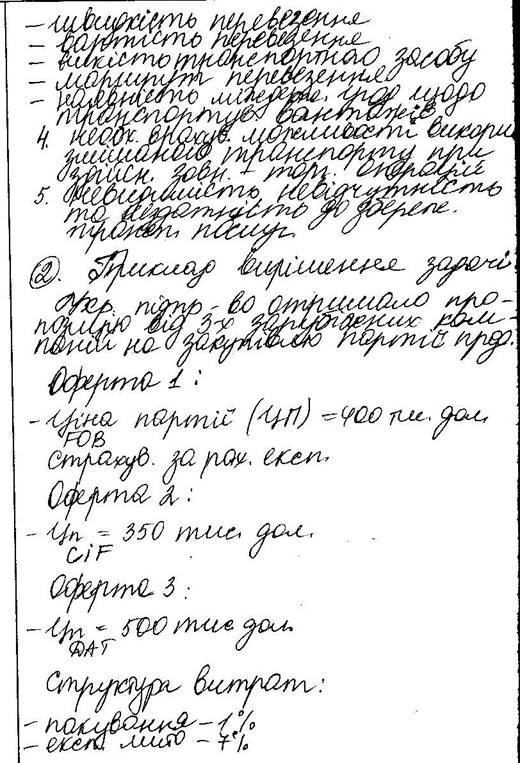 - швидкість перевезення
- вартість перевезення
- місткість транспортного засобу
- маршрут перевезення
- наявність міждерж. угод щодо
транспортув. вантажів
4. необх. врахув. можливості викори
змішаного транспорту при
здійсн. зовн. - торг. операцій
5. Невидимість, невідчутність
та нездатність до збереж.
трансп. послуг.
2. Приклад вирішення задачі:
Укр. підпр-во отримало про-
позицію від 3-х зарубіжних ком-
паній на закупівлю партії прод.
Оферта 1:
- Ціна партії (ЦП) = 400 тис. дол.
FOB
страхув. за рах. експ.
Оферта 2:
- Цп = 350 тис. дол.
CiF
Оферта 3:
- Цп = 500 тис дол.
DAT
Структура витрат:
- пакування - 1%
- експ. мито - 7%